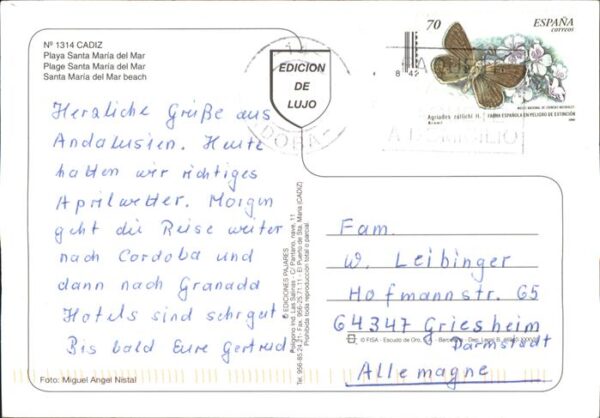 Nº 1314 CADIZ
Playa Santa María del Mar
Plage Santa María del Mar
Santa María del Mar beach
EDICION
DE
LUJO
70
ESPAÑA
correos
Agriades zullichi H.
FAUNA ESPAÑOLA EN PELIGRO DE EXTINCIÓN
A DOMICILIO
Herzliche Grüße aus
Andalusien. Heute
hatten wir richtiges
Aprilwetter. Morgen
geht die Reise weiter
nach Cordoba und
dann nach Granada
Hotels sind sehr gut.
Bis bald Eure Gertrud.
© EDICIONES PAJARES
Prohibida toda reproducción total o parcial.
Fam.
W. Leibinger
Hofmannstr. 65
64347 Griesheim
Darmstadt
Allemagne
© FISA - Escudo de Oro, S.A.
Foto: Miguel Angel Nistal